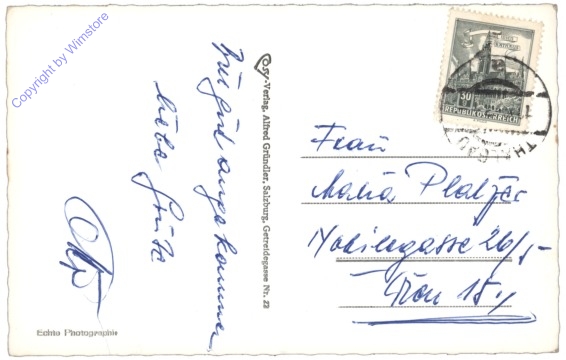 Copyright by Wimstore
Bin gut angekommen
liebe Grüße
Otto
Echte Photographie
Cosy-Verlag, Alfred Gründler, Salzburg, Getreidegasse Nr. 22
30
REPUBLIK ÖSTERREICH
THALGAU
Frau
Maria Platzer
Nobilegasse 26/5
Wien 15.,